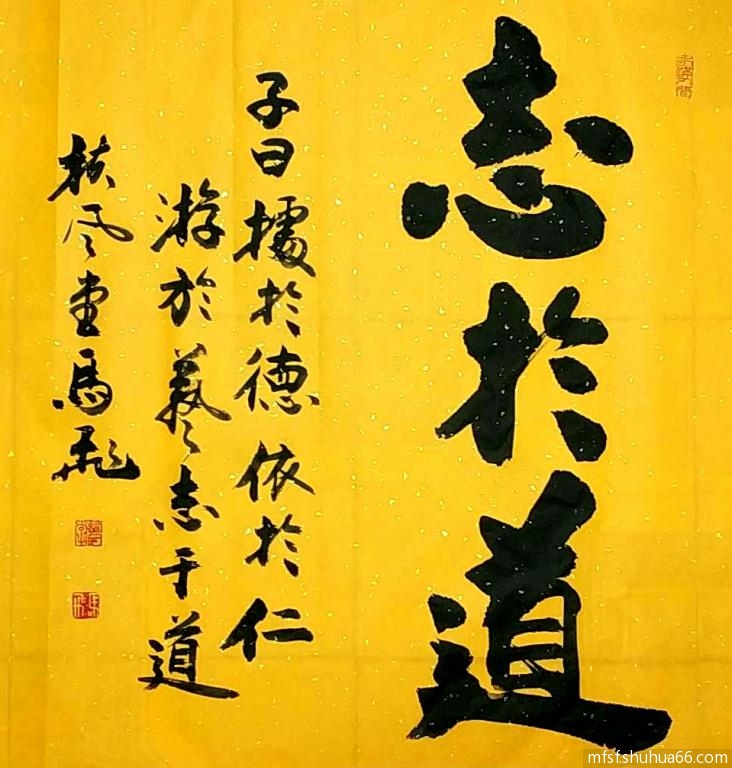 志於道
子曰據於德依於仁
游於藝志于道
扶风堂馬飛
mfsf.shuhua66.com